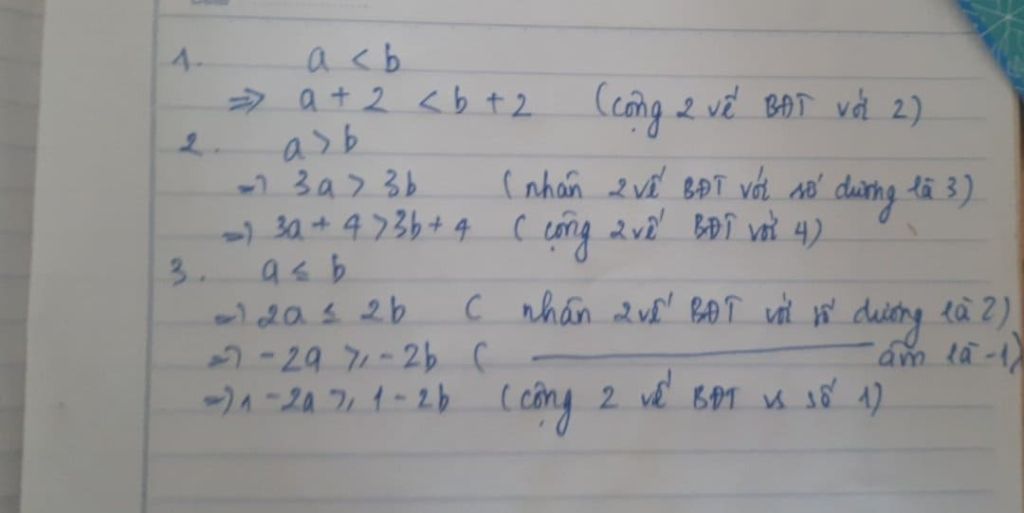 1. a < b
=> a + 2 < b + 2 (cộng 2 vế BĐT với 2)
2. a > b
=> 3a > 3b (nhân 2 vế BĐT với số dương là 3)
=> 3a + 4 > 3b + 4 (cộng 2 vế BĐT với 4)
3. a ≤ b
=> 2a ≤ 2b (nhân 2 vế BĐT với số dương là 2)
=> -2a ≥ -2b ( ——— âm là -1)
=> 1 - 2a ≥ 1 - 2b (cộng 2 vế BĐT vs số 1)